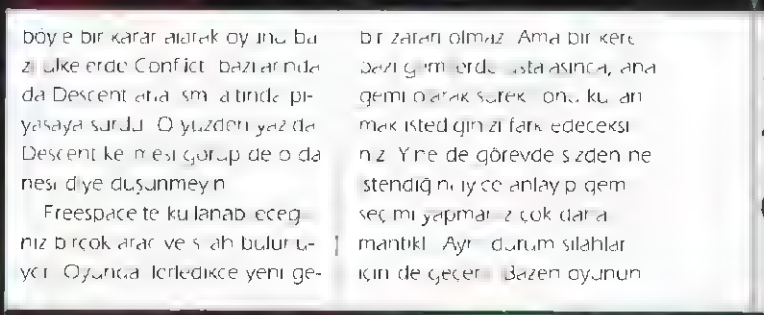 böyle bir karar alarak oyunu ba-
zı ülkelerde Conflict bazılarında
da Descent ana ismi altında pi-
yasaya sürdü. O yüzden yazıda
Descent kelimesi görüp de o da
nesi diye düşünmeyin
Freespace'te kullanabileceği-
niz birçok araç ve silah bulunu-
yor. Oyunda ilerledikçe yeni ge-
bir zararı olmaz. Ama bir kere
bazı gemilerde ustalaşınca, ana
gemi olarak sürekli onu kullan
mak istediğinizi fark edeceksi
niz. Yine de görevde sizden ne
istendiğini iyice anlayıp gemi
seçimi yapmanız çok daha
mantıklı. Aynı durum silahlar
için de geçerli. Bazen oyunun